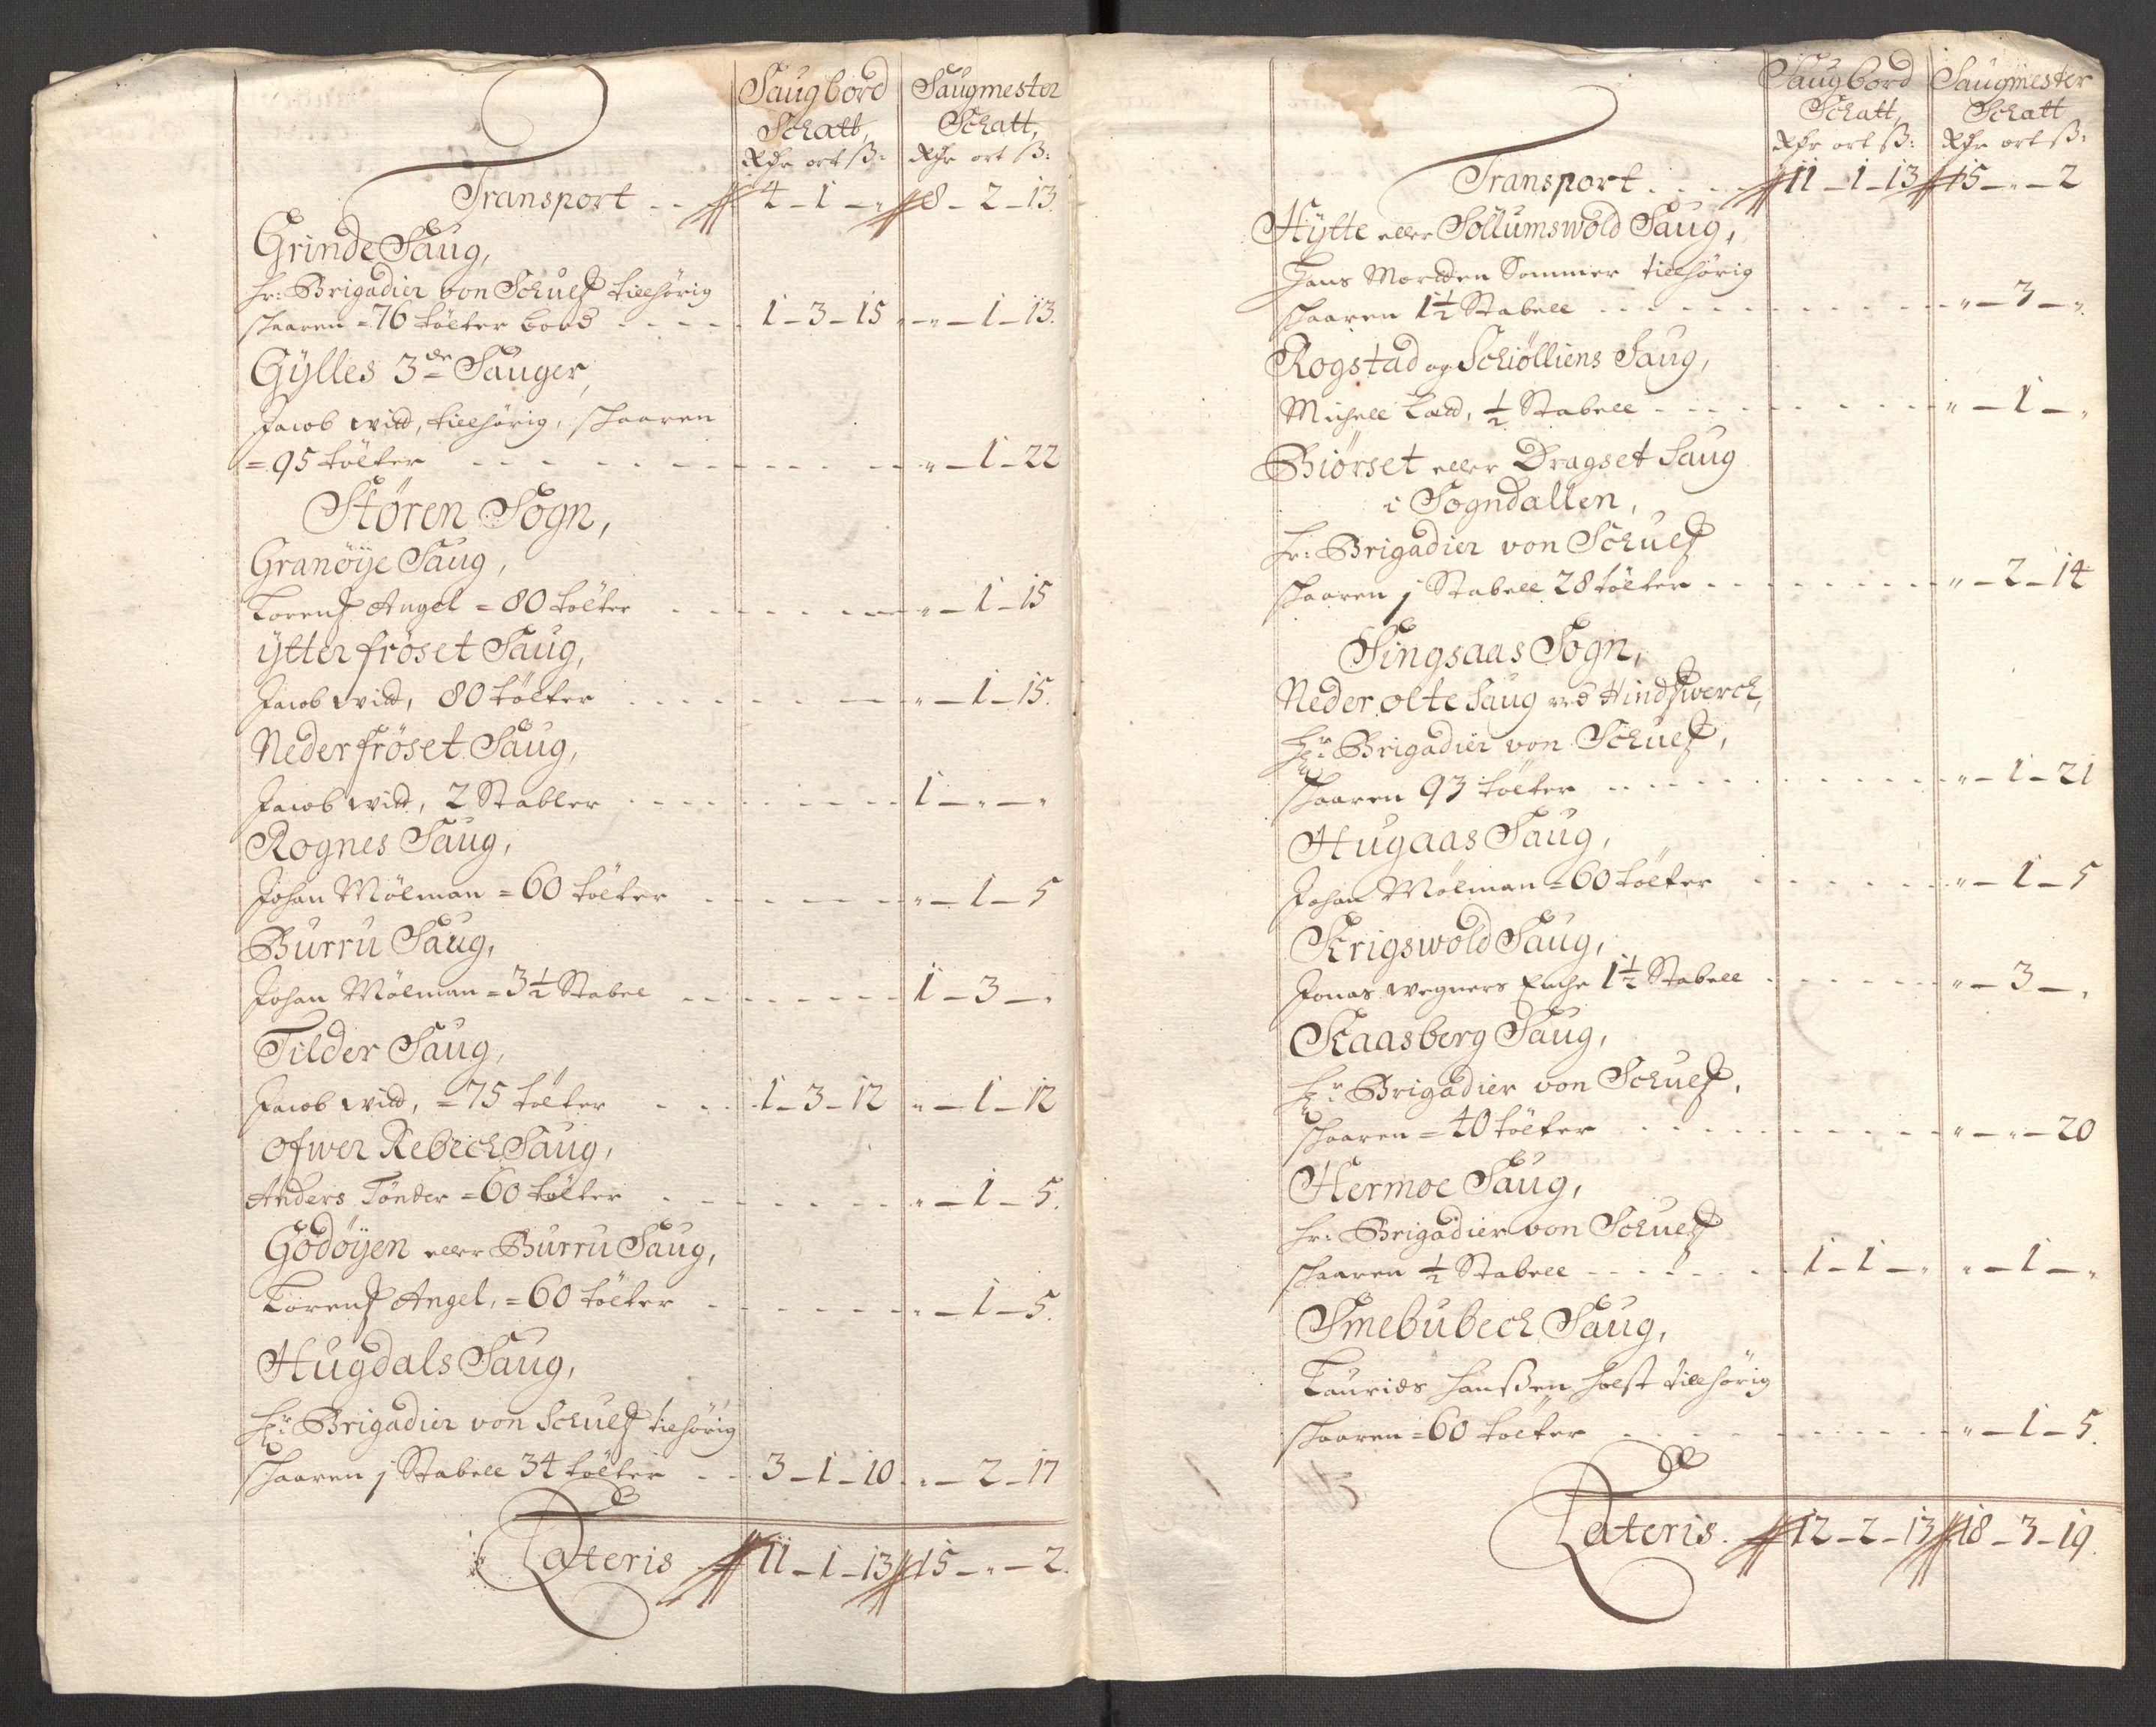 Saugbord Saugmester
Schatt, Schatt,
Rdr ort ß: Rdr ort ß:
Transport 4 - 1 - „ 8 - 2 - 13.
Grinde Saug,
Hr: Brigadier von Schultz tillhörig
skaaren = 76 tölter bord 1 - 3 - 15 „ - 1 - 13.
Gylles 3de Sauger,
Jacob Widd, tillhörig, skaaren
= 95 tölter „ - 1 - 22
Stören Sogn,
Granöye Saug,
Lorentz Angel = 80 tölter „ - 1 - 15
Ytter fröset Saug,
Jacob Widd, 80 tölter „ - 1 - 15.
Neder fröset Saug,
Jacob Widd, 2 Stabler 1 - „ - „
Rognes Saug,
Johan Mölman = 60 tölter „ - 1 - 5
Burru Saug,
Johan Mölman = 3½ Stabel 1 - 3 - „
Tilder Saug,
Jacob Widd, = 75 tölter 1 - 3 - 12 „ - 1 - 12
Ofwer Rebech Saug,
Anders Tönder = 60 tölter „ - 1 - 5.
Godöyen eller Burru Saug,
Lorentz Angel, = 60 tölter „ - 1 - 5.
Hugdals Saug,
Hr Brigadier von Schultz tilhörig
skaaren j Stabell 34 tölter 3 - 1 - 10 „ - 2 - 17
Lateris 11 - 1 - 13 15 - „ - 2.
Saugbord Saugmester
Schatt, Schatt
Rdr ort ß: Rdr ort ß:
Transport 11 - 1 - 13 15 - „ - 2
Hytte eller Sollumswold Saug,
Hans Mortten Sommer tillhörig
skaaren 1½ Stabell „ - 3 - „
Rogstad og Schiölliens Saug,
Michell Ladd, ½ Stabell „ - 1 - „
Biörset eller Dragset Saug
i Sogndallen,
Hr: Brigadier von Schultz
skaaren j Stabell 28 tölter „ - 2 - 14
Singsaas Sogn,
Neder olte Saug ved Hindswerch,
Hr Brigadier von Schultz,
skaaren 93 tölter „ - 1 - 21
Hugaas Saug,
Johan Mölman = 60 tölter „ - 1 - 5
Krigswold Saug,
Jonas Wegners Enche 1½ Stabell „ - 3 - „
Kaasberg Saug,
Hr Brigadier von Schultz,
skaaren = 40 tölter „ - „ - 20
Hermoe Saug,
Hr: Brigadier von Schultz
skaaren ½ Stabell 1 - 1 - „ „ - 1 - „
Smebubech Saug,
Laurids Hanßen Holst tillhörig
skaaren = 60 tölter „ - 1 - 5.
Lateris. 12 - 2 - 13 18 - 3 - 19.